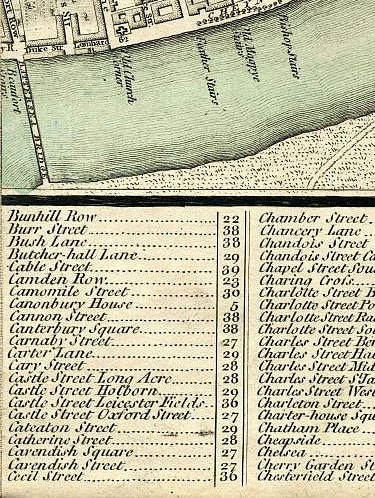 R. Duke Str.
Lombard St.
BATTERSEA BRIDGE
Beaufort Stairs
Old Church Corner
Feather Stairs
Old Magpye Stairs
Bishop Stairs
Bunhill Row 22
Burr Street 38
Bush Lane 38
Butcher-hall Lane 29
Cable Street 39
Camden Row 23
Camomile Street 30
Canonbury House 5
Cannon Street 38
Canterbury Square 38
Carnaby Street 27
Carter Lane 29
Cary Street 28
Castle Street Long Acre 28
Castle Street Holborn 29
Castle Street Leicester Fields 36
Castle Street Oxford Street 27
Cateaton Street 29
Catherine Street 28
Cavendish Square 27
Cavendish Street 27
Cecil Street 36
Chamber Street
Chancery Lane
Chandois Street
Chandois Street Ca
Chapel Street Sou
Charing Cross
Charlotte Street B
Charlotte Street Po
Charlotte Street Ra
Charlotte Street So
Charles Street Ber
Charles Street Ha
Charles Street Mid
Charles Street S.t Ja
Charles Street West
Charleton Street
Charter-house Squ
Chatham Place
Cheapside
Chelsea
Cherry Garden St
Chesterfield Street